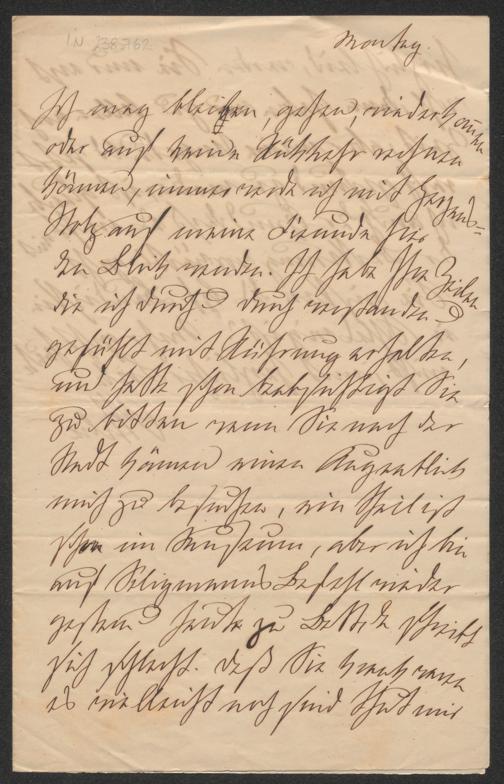 IN 238762
Montag.
Ich mag bleiben, gehen, wiederkommen
oder auf keine Rückkehr rechnen
können, immer werde ich mit Herzens-
Stolz auf meine Freunde hier
den Blick wenden. Ich habe Ihre Zeilen
die ich durch u durch verstanden u
gefühlt mit Rührung erhalten,
und hatte schon beabsichtigt Sie
zu bitten wenn Sie nach der
Stadt kämen einen Augenblick
mich zu besuchen, ein Theil ist
schon im Museum, aber ich bin
auf Seligmanns Befehl wieder
gestern u heute zu Bette schreibt
sich schlecht. Daß Sie krank waren
es vielleicht noch sind thut mir